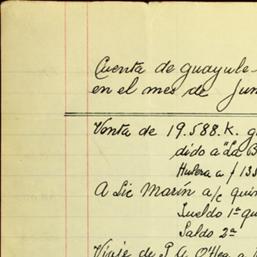 Cuenta de guayule
en el mes de Jun
Venta de 19.588.K. g
dido a "La B
Hulera a f 135
A Lic Marín a/c quin
Sueldo 1ª qu
Saldo 2ª
Viaje de P. A. O'Hea a